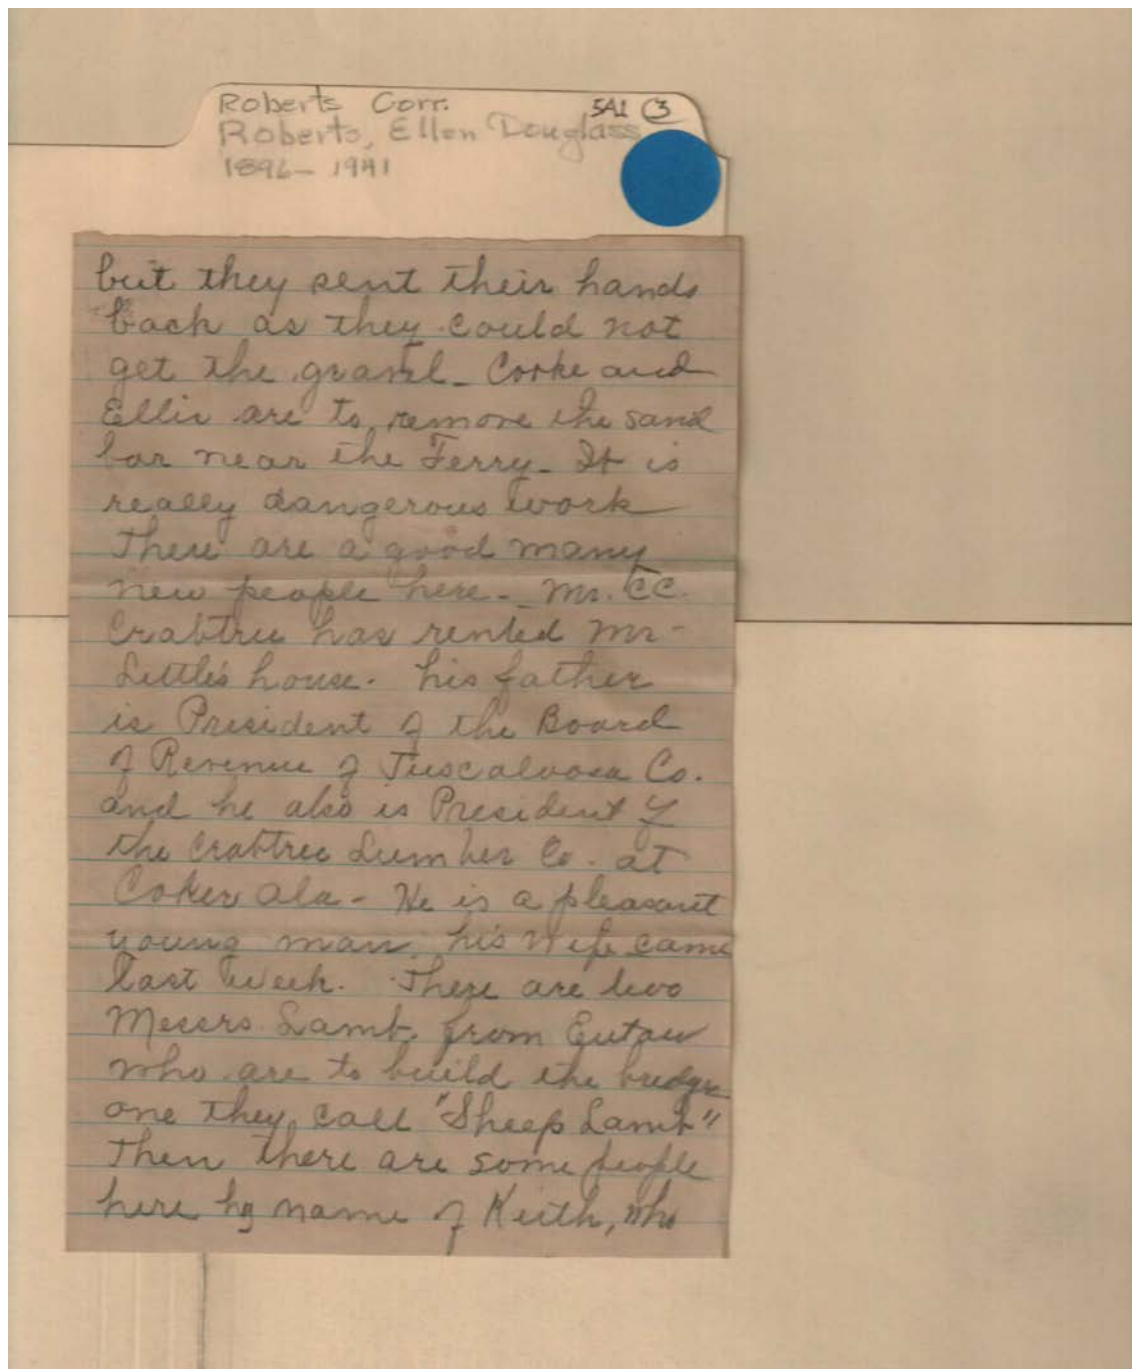 Roberts Corr. 5A1 3
Roberts, Ellen Douglass
1896-1941
but they sent their hands
back as they could not
get the gravel - Corke and
Ellis are to remove the sand
bar near the Ferry - It is
really dangerous work
There are a good many
new people here - Mr. CC.
Crabtree has rented Mr -
Little's house. his father
is President of the Board
of Revenue of Tuscaloosa Co.
and he also is President of
the Crabtree Lumber Co. at
Coker Ala - He is a pleasant
young man, his wife came
last week. There are two
Messrs Lamb, from Eutaw
who are to build the bridge
one they call "Sheep Lamb"
Then there are some people
here by name of Keith, who